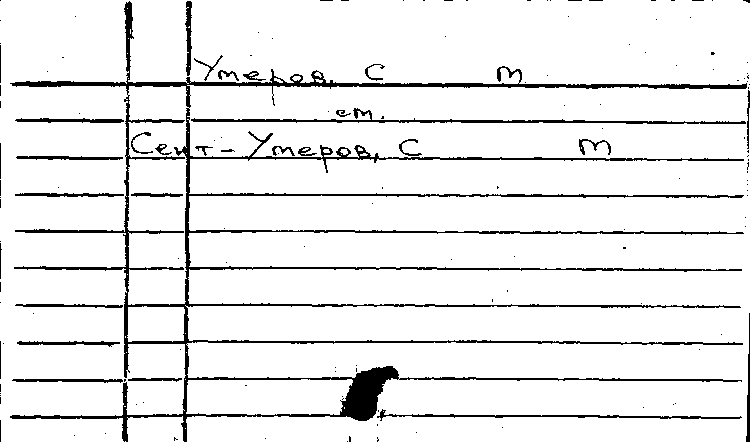 Умеров, С т
ст.
Сеит-Умеров, С т